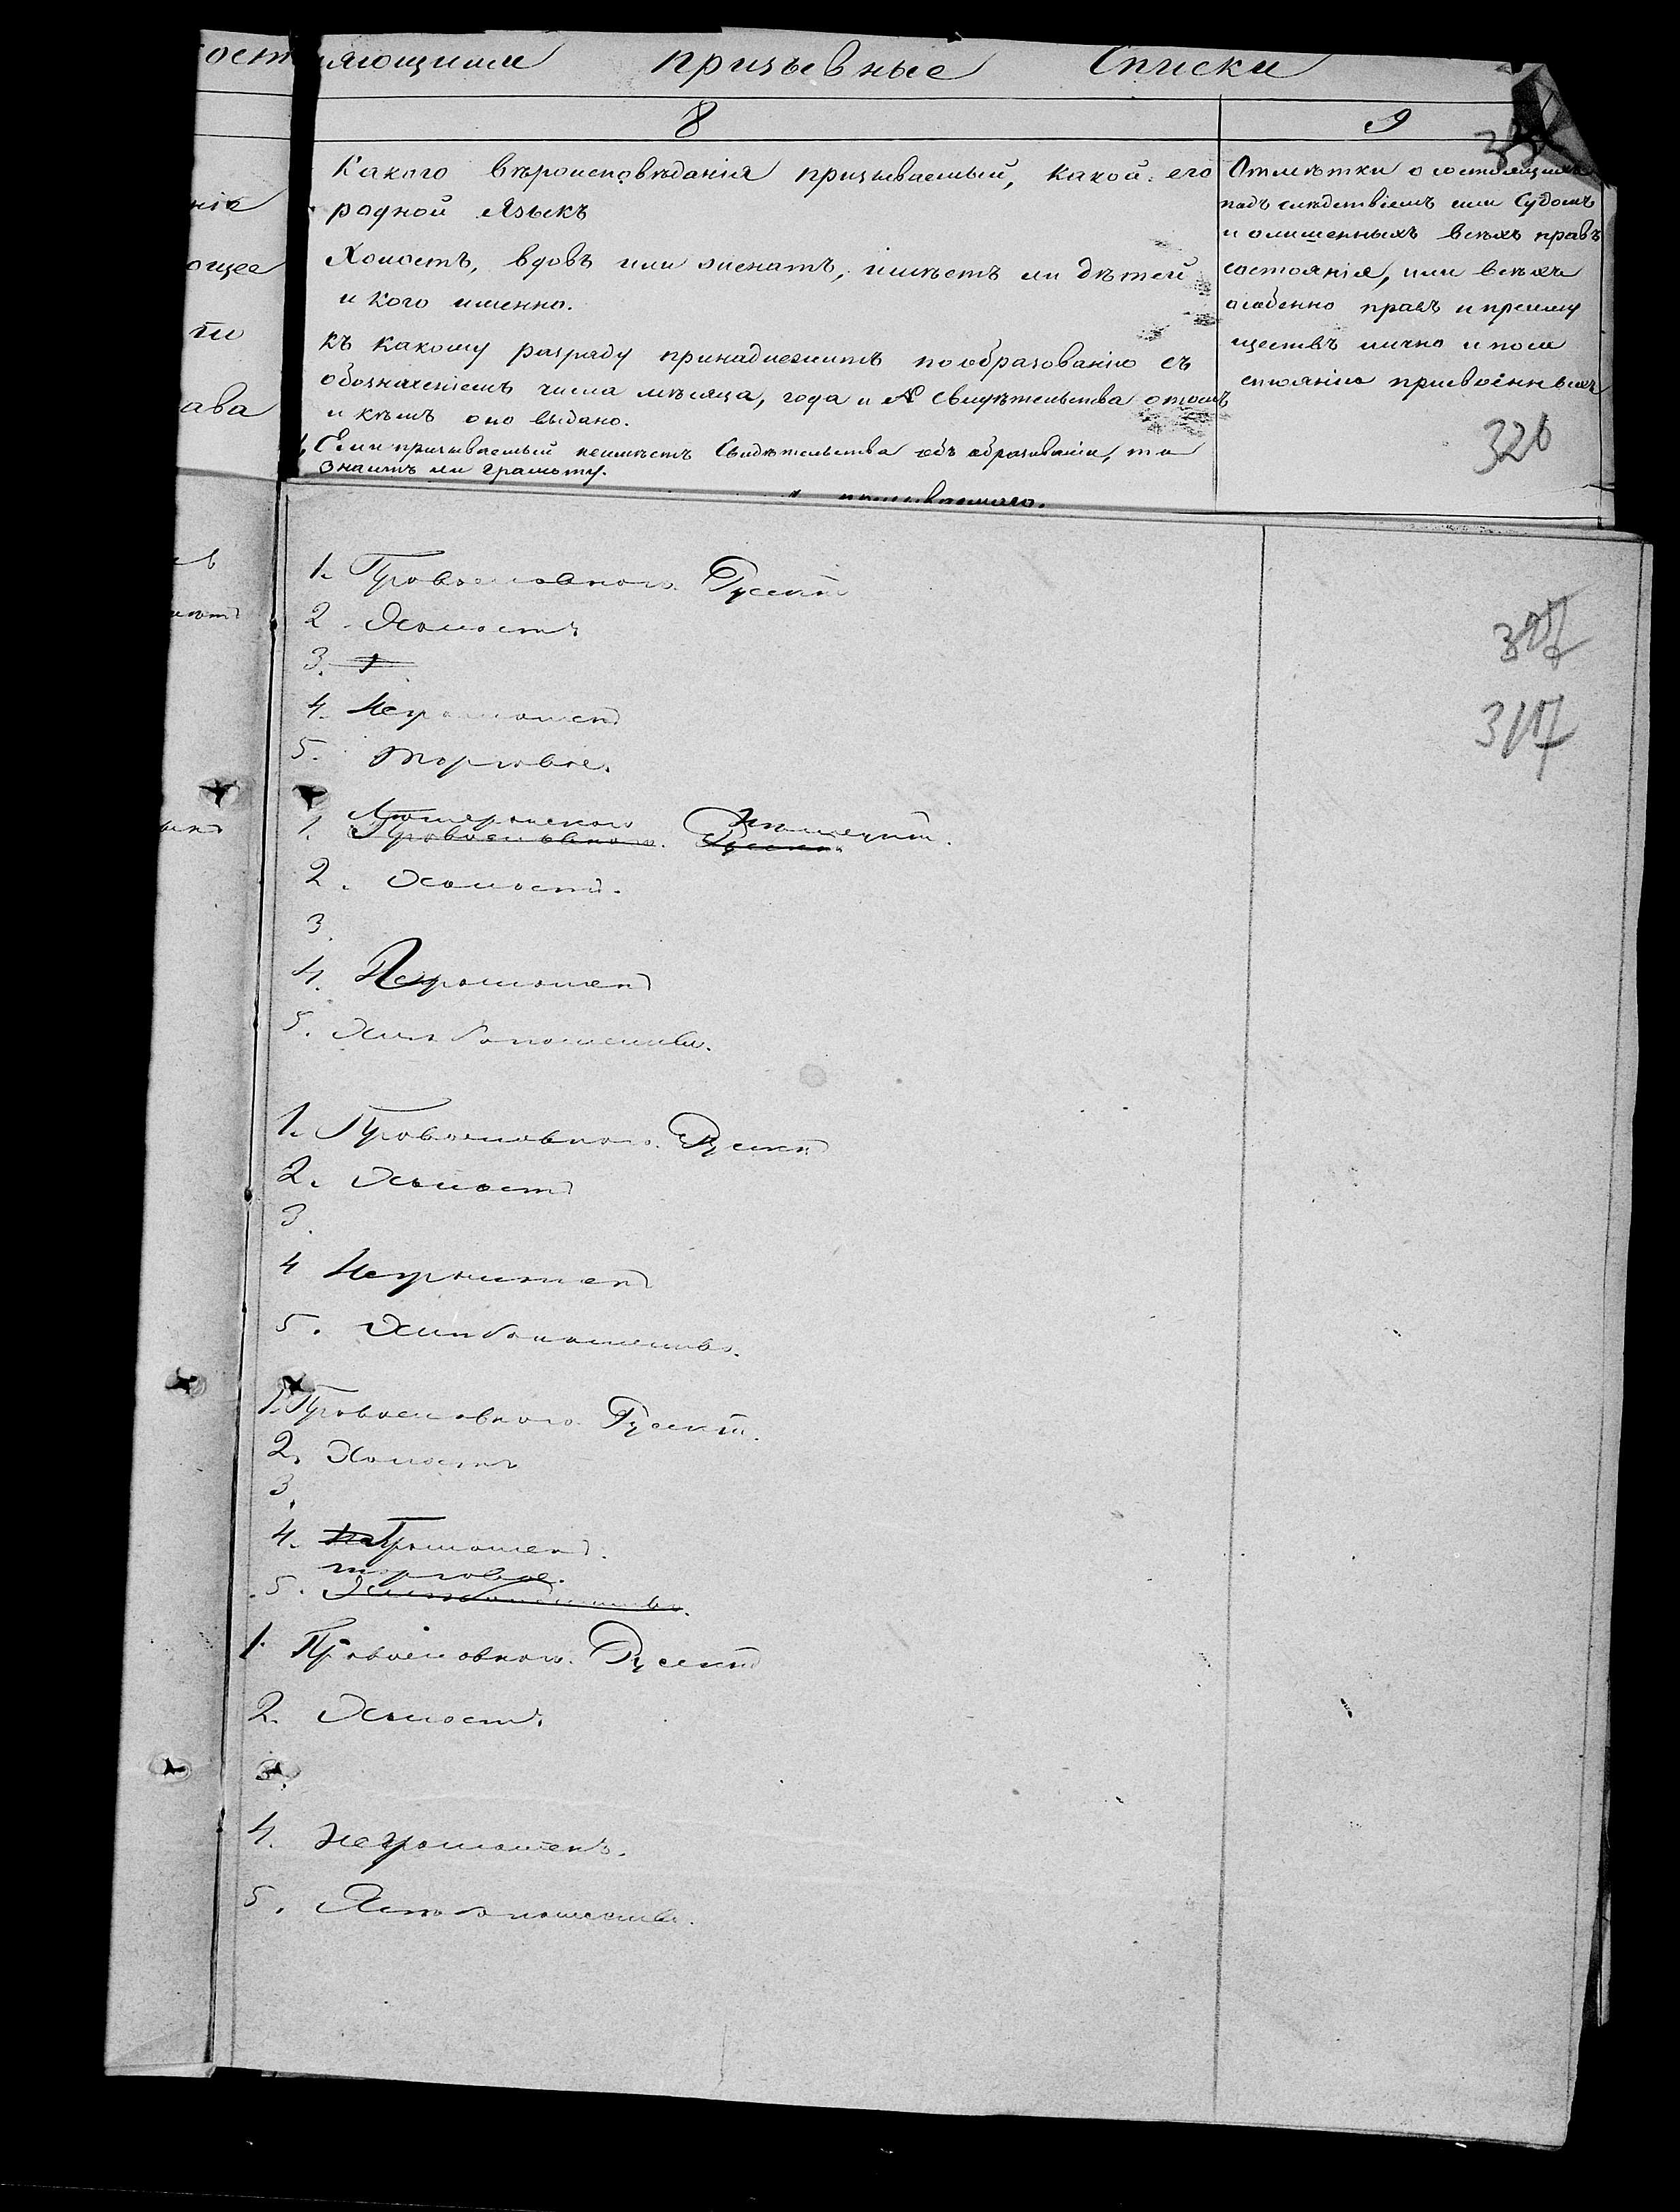 яющими призывные Списки
8
9
Какого вѣроисповѣданія призываемый, какой его
родной Языкъ
Холостъ, вдовъ или женатъ, имѣетъ ли дѣтей
и кого именно.
Къ какому разряду принадлежитъ по образованію съ
обозначеніемъ числа мѣсяца, года и № Свидѣтельства о томъ
и кѣмъ оно выдано.
Если призываемый неимѣетъ Свидѣтельства объ образованіи, то
знаитъ ли грамоту.
призываемаго.
Отмѣтки о состоящихъ
подъ слѣдствіемъ или Судомъ
и о лишенныхъ всѣхъ правъ
состоянія, или всѣхъ
особенно правъ и преиму
ществъ лично и посо
стоянію присвоенныхъ
326
317
317
нія
ющее
ти
ава
1. Православнаго. Русскій
2. Холостъ
3.
4. Неграмотенъ
5. Торговлею.
Лютеранскаго Нѣмецкій.
1. Православнаго. Русскій
2. Холостъ.
3.
4. Неграмотенъ
5. Хлѣбопашество.
1. Православнаго. Русскій
2. Холостъ
3.
4 Неграмотенъ
5. Хлѣбопашество.
1. Православнаго Русскій.
2. Холостъ
3.
4. Не Грамотенъ.
торговлею.
5. Хлѣбопашество.
1. Православнаго. Русскій
2. Холостъ.
3.
4. Неграмотенъ.
5. Хлѣбопашество.